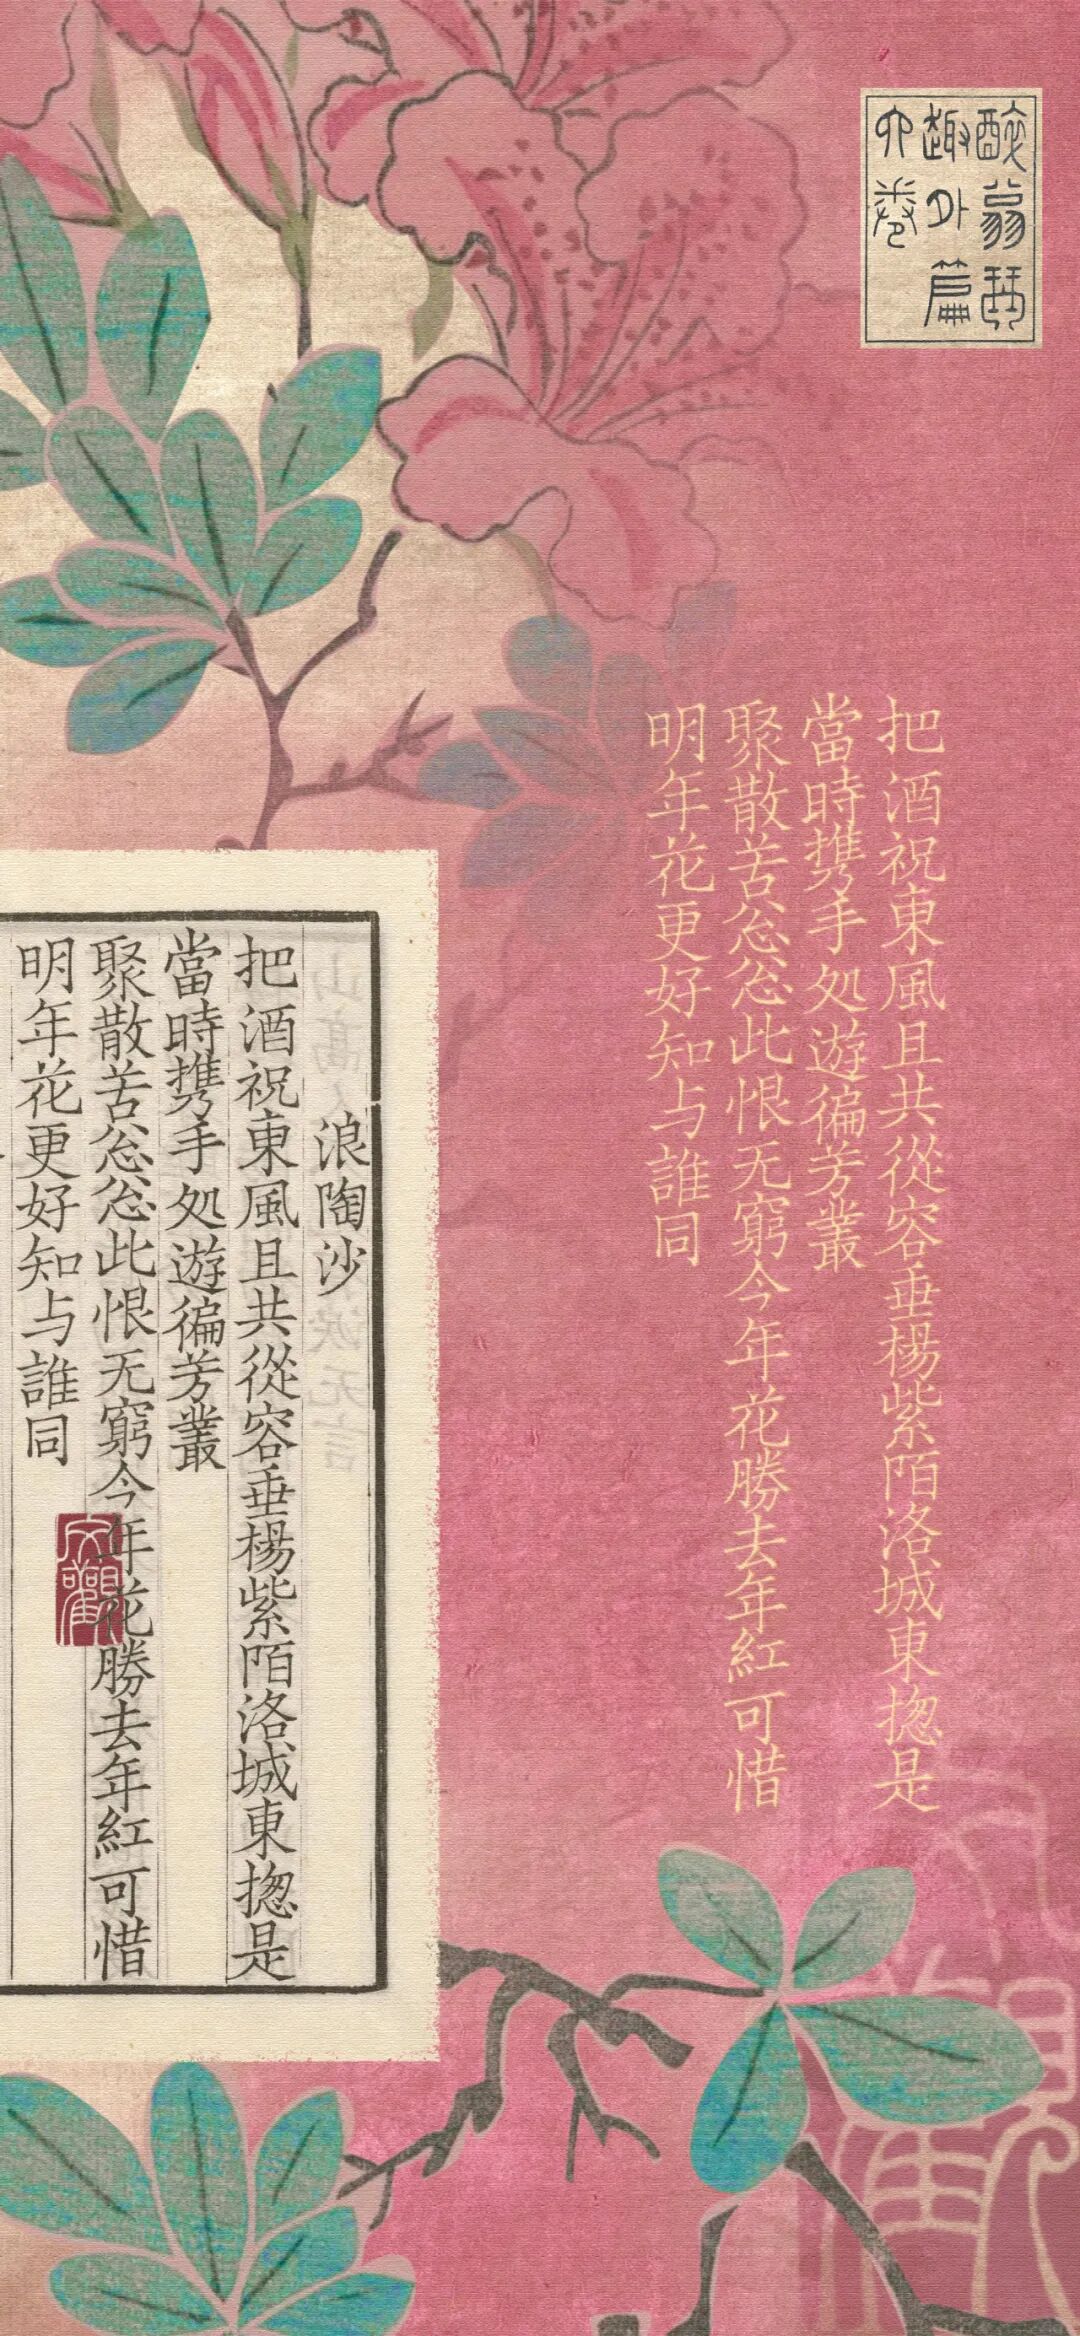 醉翁琴
趣外篇
六卷
把酒祝東風且共從容垂楊紫陌洛城東揔是
當時携手処遊徧芳叢
聚散苦怱怱此恨无窮今年花勝去年紅可惜
明年花更好知与誰同
浪陶沙
把酒祝東風且共從容垂楊紫陌洛城東揔是
當時携手処遊徧芳叢
聚散苦怱怱此恨无窮今年花勝去年紅可惜
明年花更好知与誰同